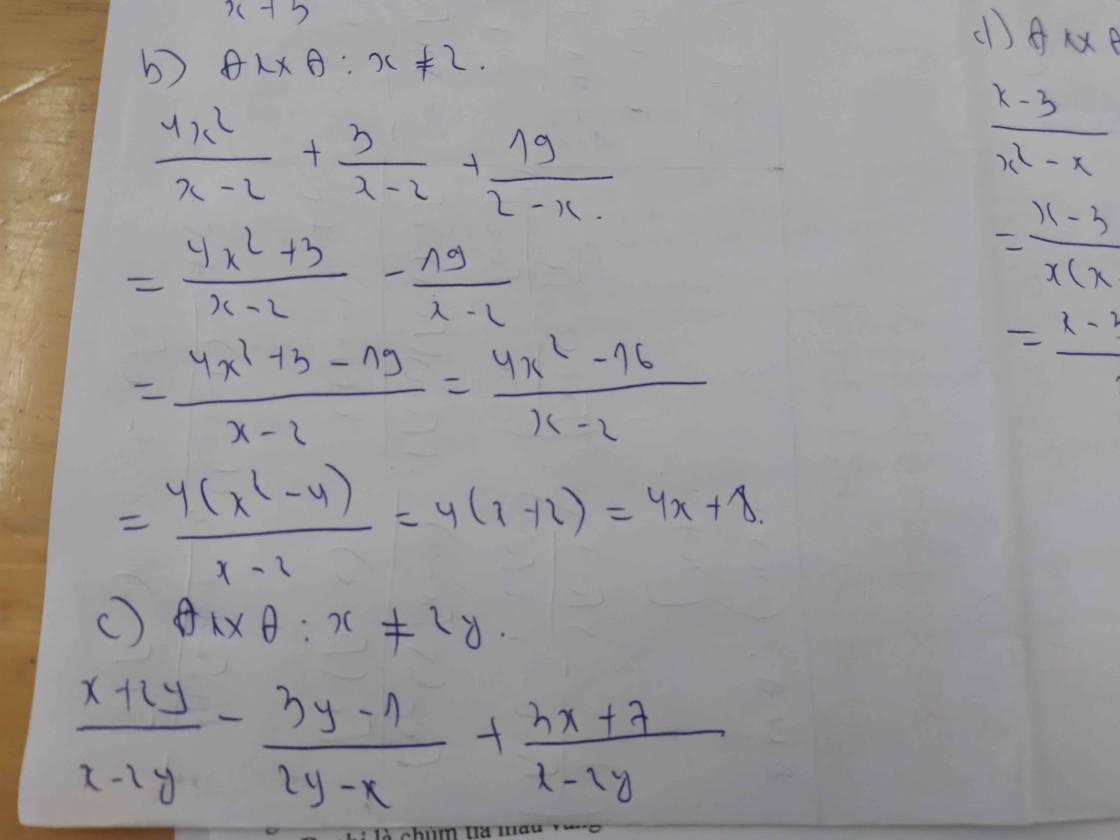 x+3
b) ĐKXĐ: x ≠ 2.
4x²/(x-2) + 3/(x-2) + 19/(2-x).
= (4x²+3)/(x-2) - 19/(x-2)
= (4x²+3-19)/(x-2) = (4x²-16)/(x-2)
= 4(x²-4)/(x-2) = 4(x+2) = 4x+8.
c) ĐKXĐ: x ≠ 2y.
(x+2y)/(x-2y) - (3y-1)/(2y-x) + (3x+7)/(x-2y)
d) ĐKXĐ
x-3
x²-x
= x-3
x(x
= x-3
chùm tia màu vàng